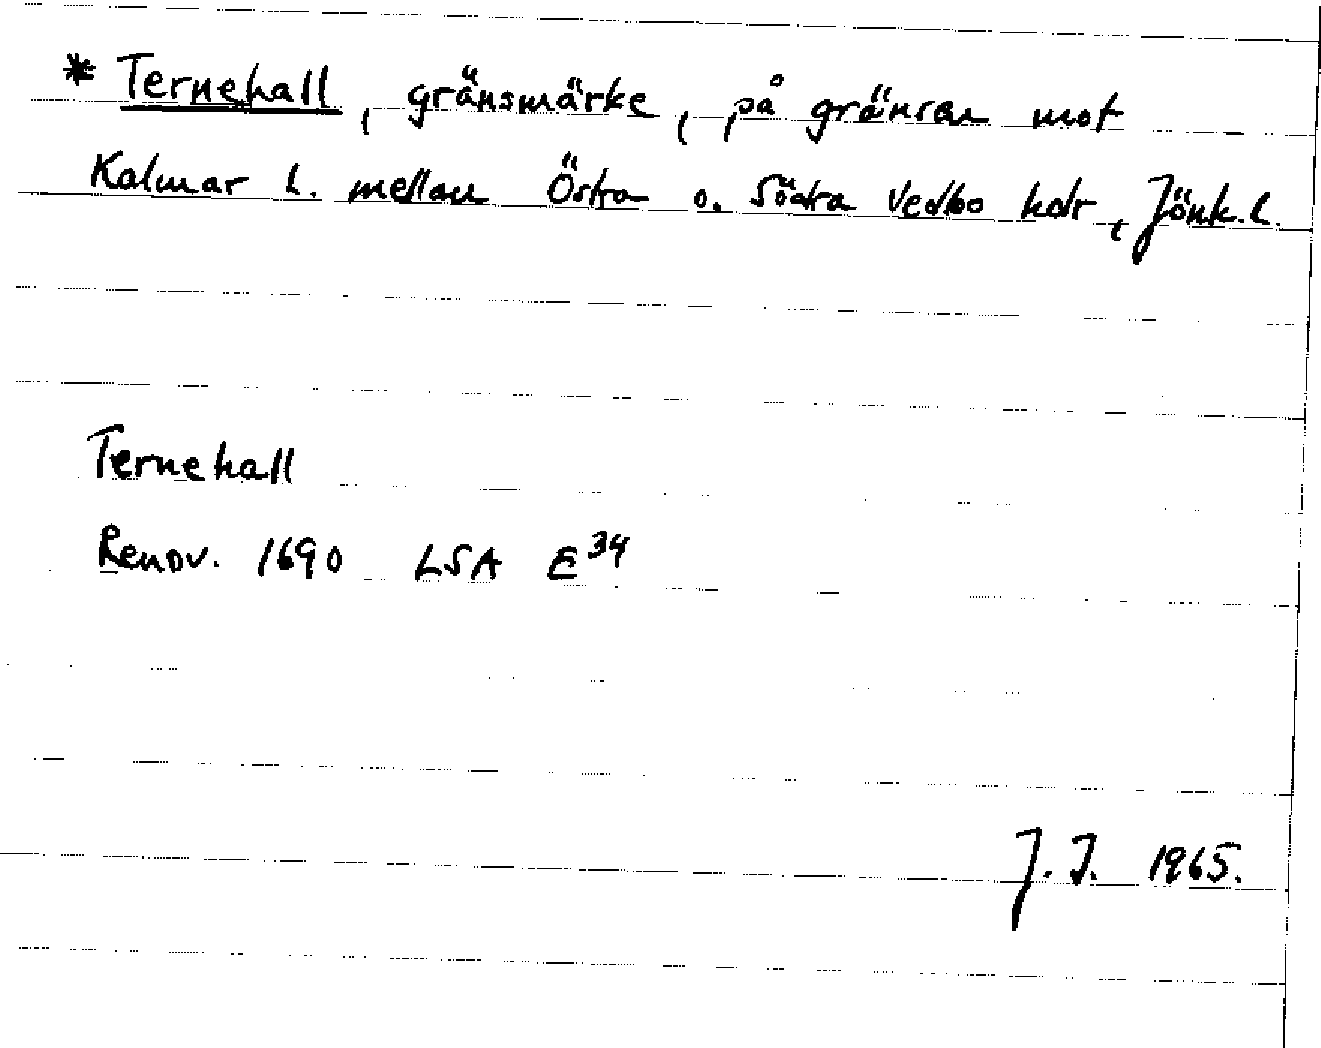 * Ternehall, gränsmärke, på gränsen mot
Kalmar l. mellan Östra o. Södra Vedbo hdr, Jönk. l.
Ternehall
Renov. 1690 LSA E³⁴
J. I. 1965.